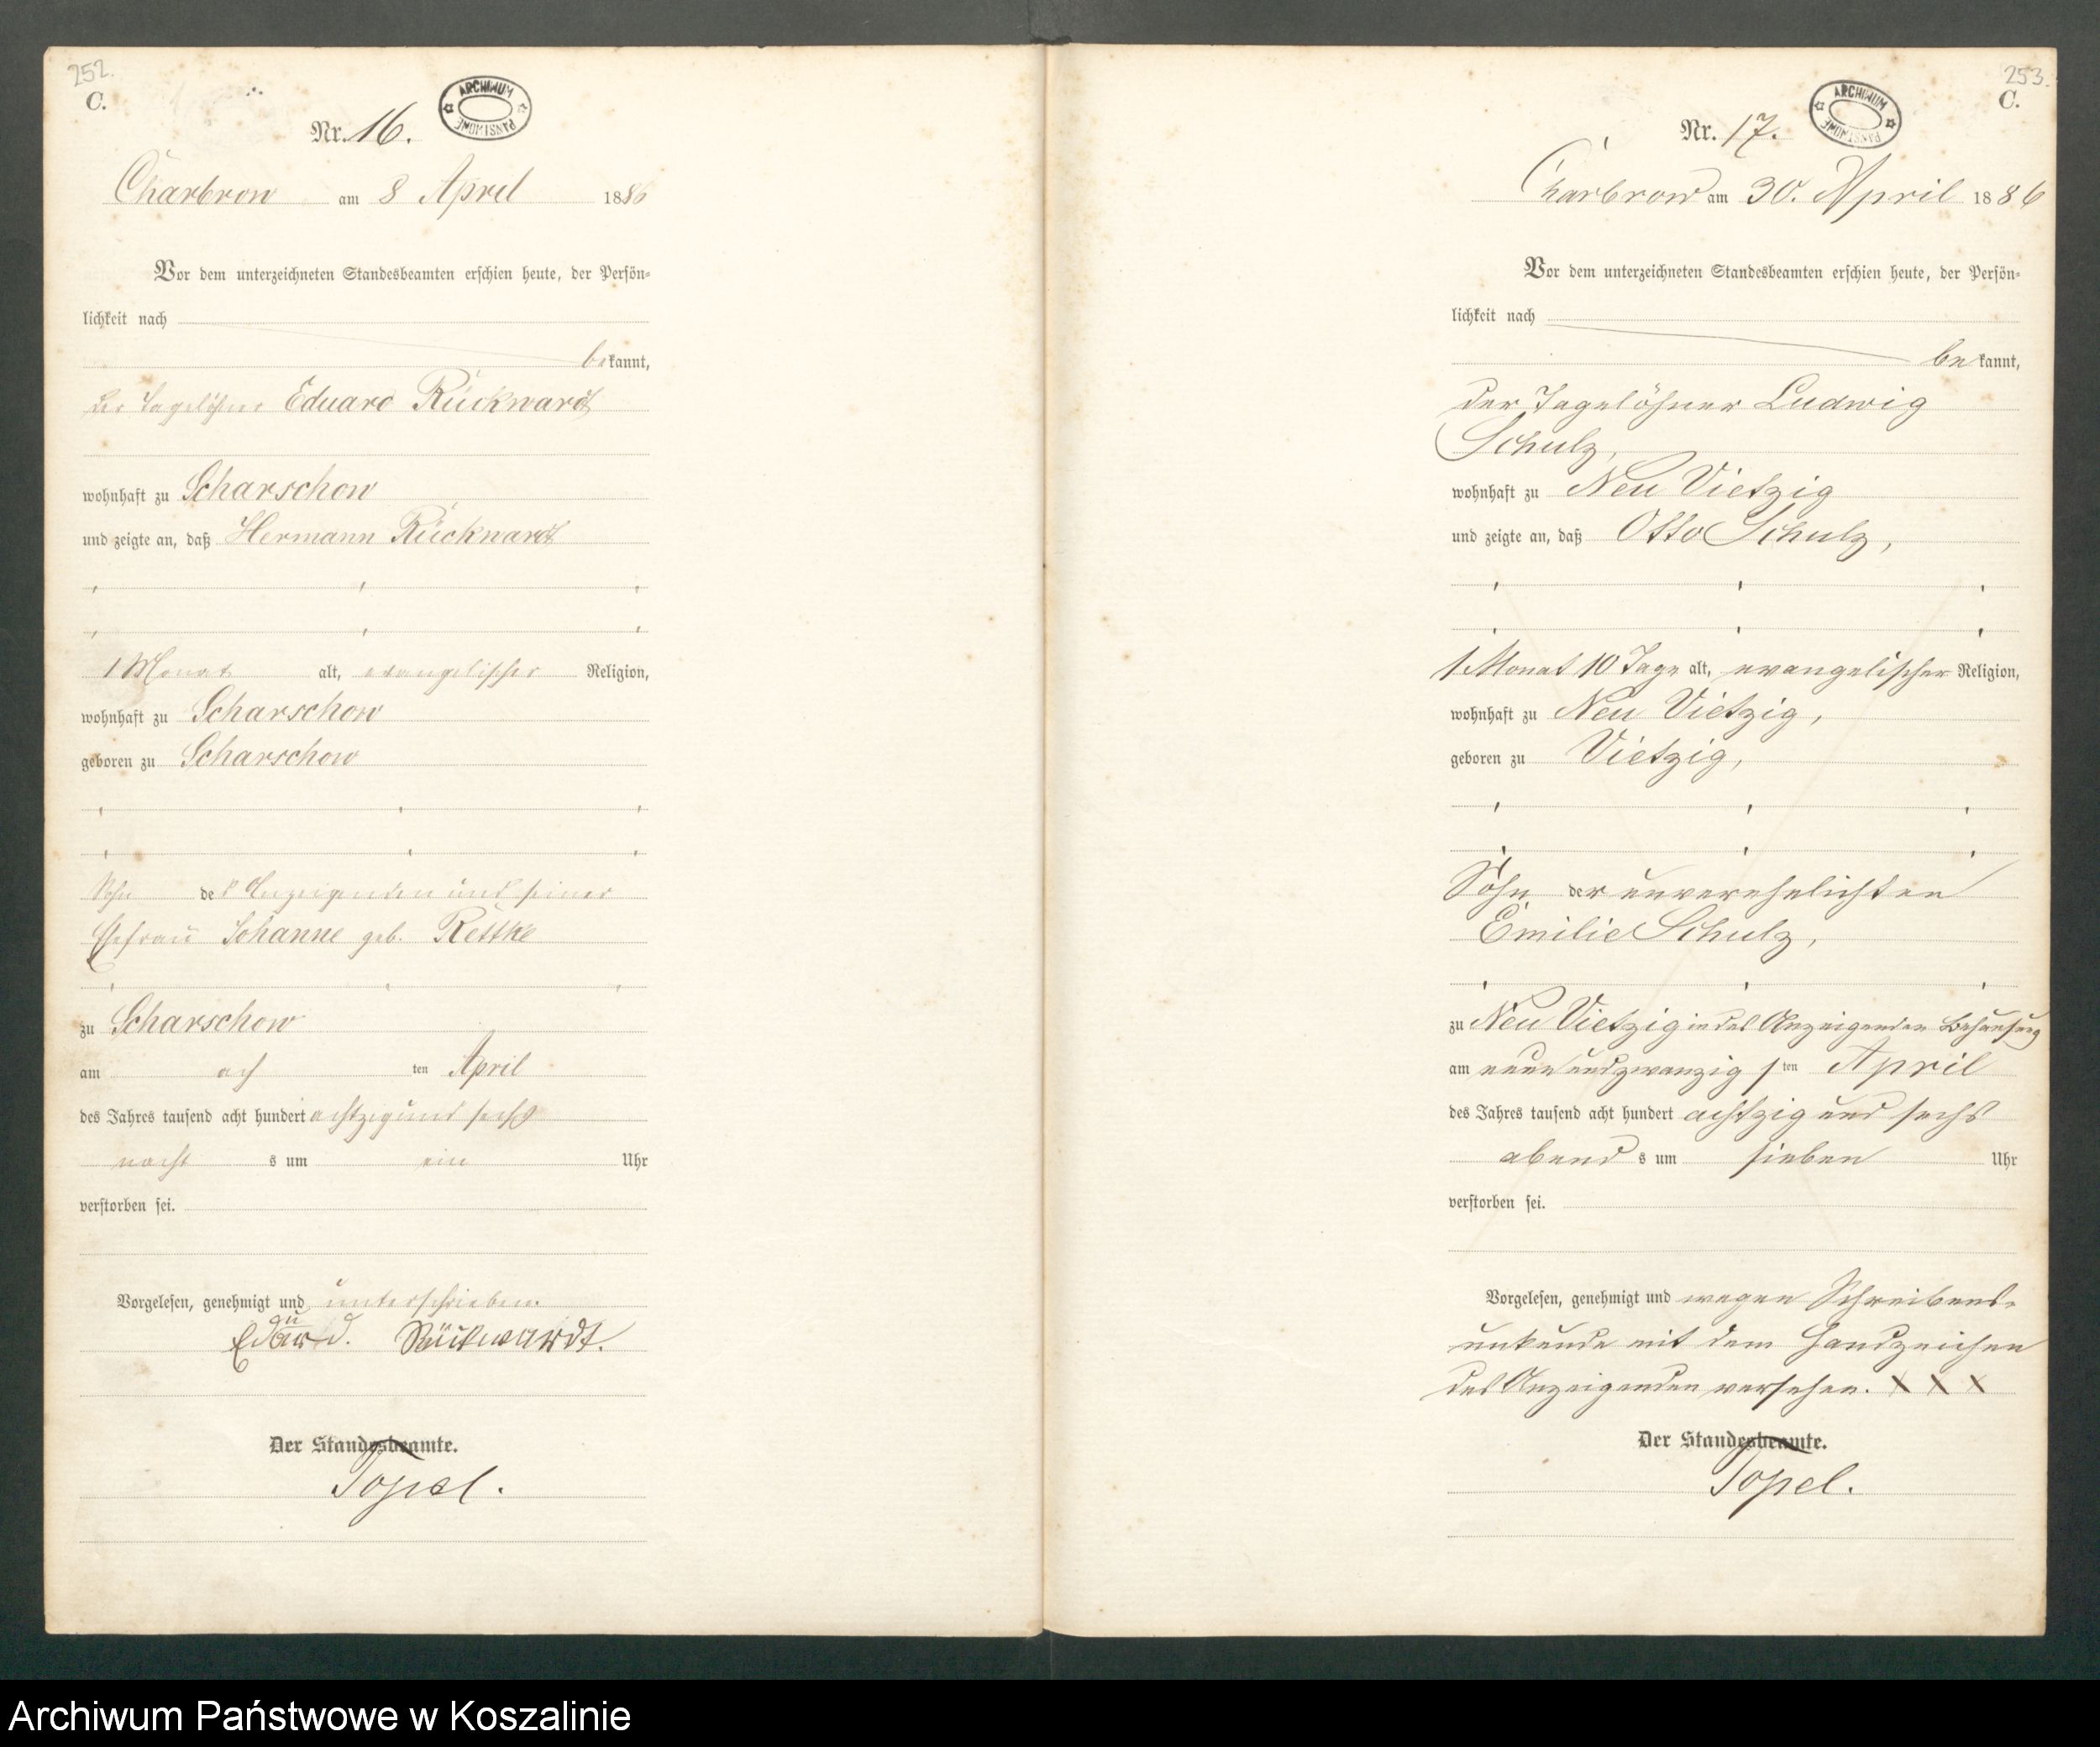 252.
C.
ARCHIWUM PAŃSTWOWE
Nr. 16.
Charbrow am 8 April 1886
Vor dem unterzeichneten Standesbeamten erschien heute, der Persön=
lichkeit nach
bekannt,
der Tagelöhner Eduard Rückwardt
wohnhaft zu Scharschow
und zeigte an, daß Hermann Rückwardt
1 Monat alt, evangelischer Religion,
wohnhaft zu Scharschow
geboren zu Scharschow
Sohn des Anzeigenden und seiner
Ehefrau Johanne geb. Rettke
zu Scharschow
am ach ten April
des Jahres tausend acht hundert achtzig und sechs
nacht s um ein Uhr
verstorben sei.
Vorgelesen, genehmigt und unterschrieben.
Edward. Rückwardt.
Der Standesbeamte.
Topel.
253.
C.
ARCHIWUM PAŃSTWOWE
Nr. 17.
Charbrow am 30. April 1886
Vor dem unterzeichneten Standesbeamten erschien heute, der Persön=
lichkeit nach
bekannt,
der Tagelöhner Ludwig
Schulz,
wohnhaft zu Neu Vietzig
und zeigte an, daß Otto Schulz,
1 Monat 10 Tage alt, evangelischer Religion,
wohnhaft zu Neu Vietzig,
geboren zu Vietzig,
Sohn der unverehelichten
Emilie Schulz,
zu Neu Vietzig in des Anzeigenden Behausung
am neun und zwanzigsten April
des Jahres tausend acht hundert achtzig und sechs
abend s um sieben Uhr
verstorben sei.
Vorgelesen, genehmigt und wegen Schreibens-
unkunde mit dem Handzeichen
des Anzeigenden versehen. X X X
Der Standesbeamte.
Topel.
Archiwum Państwowe w Koszalinie